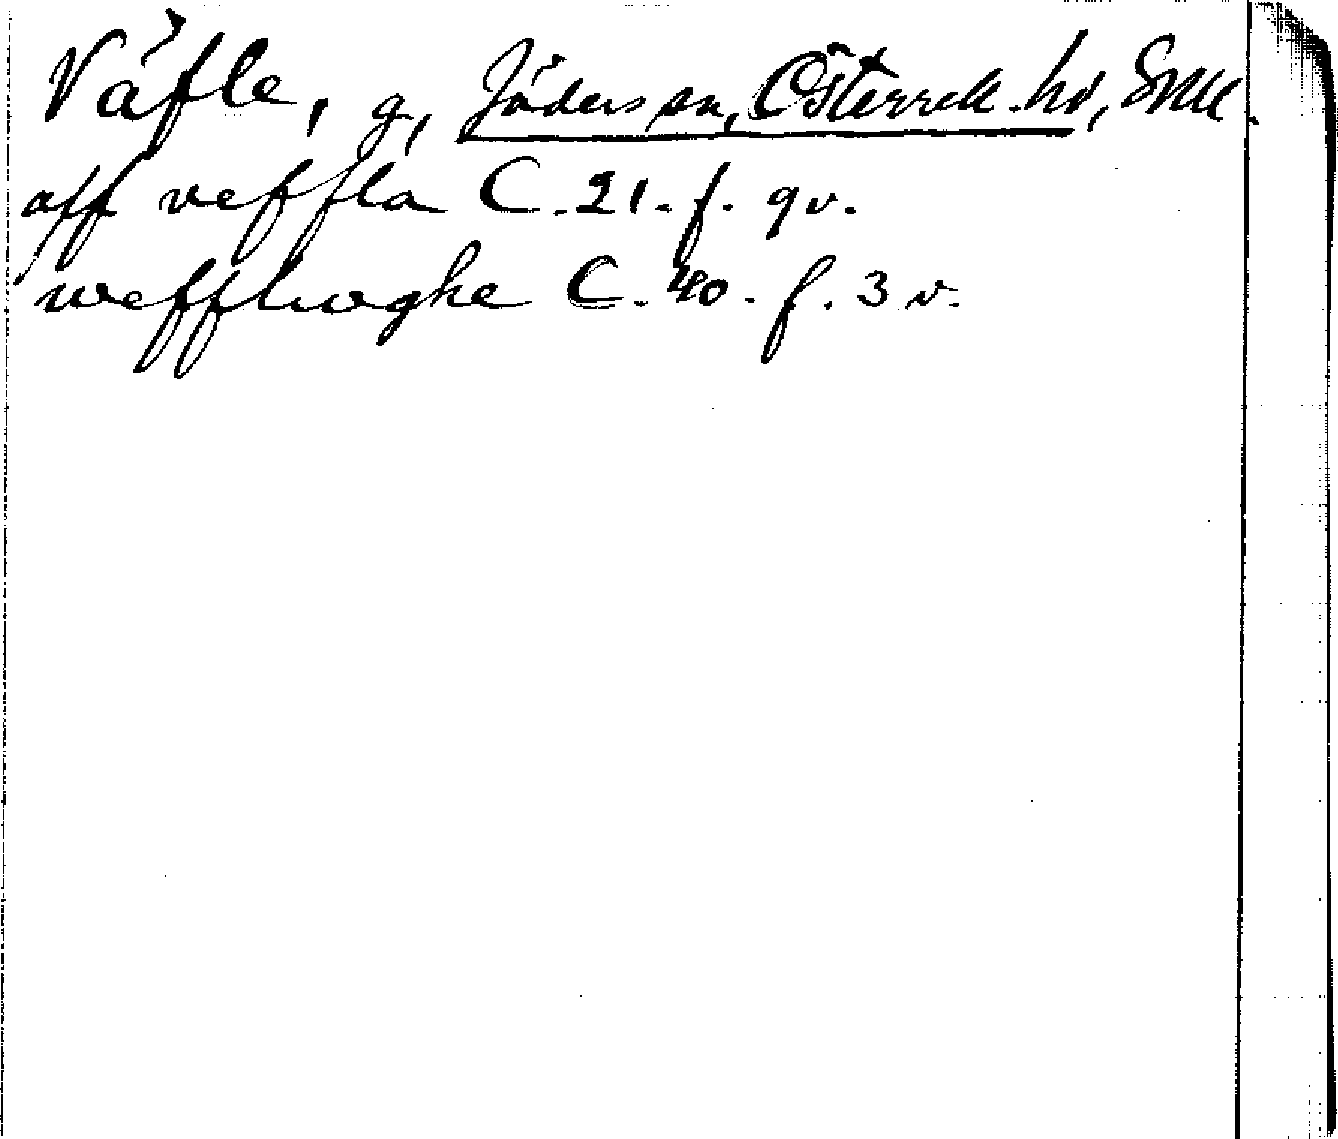 Väfle, g, Jäders sn, Österrek. hd, Srml.
aff veffla C. 21. f. 9v.
weffluughe C. 40. f. 3 v.